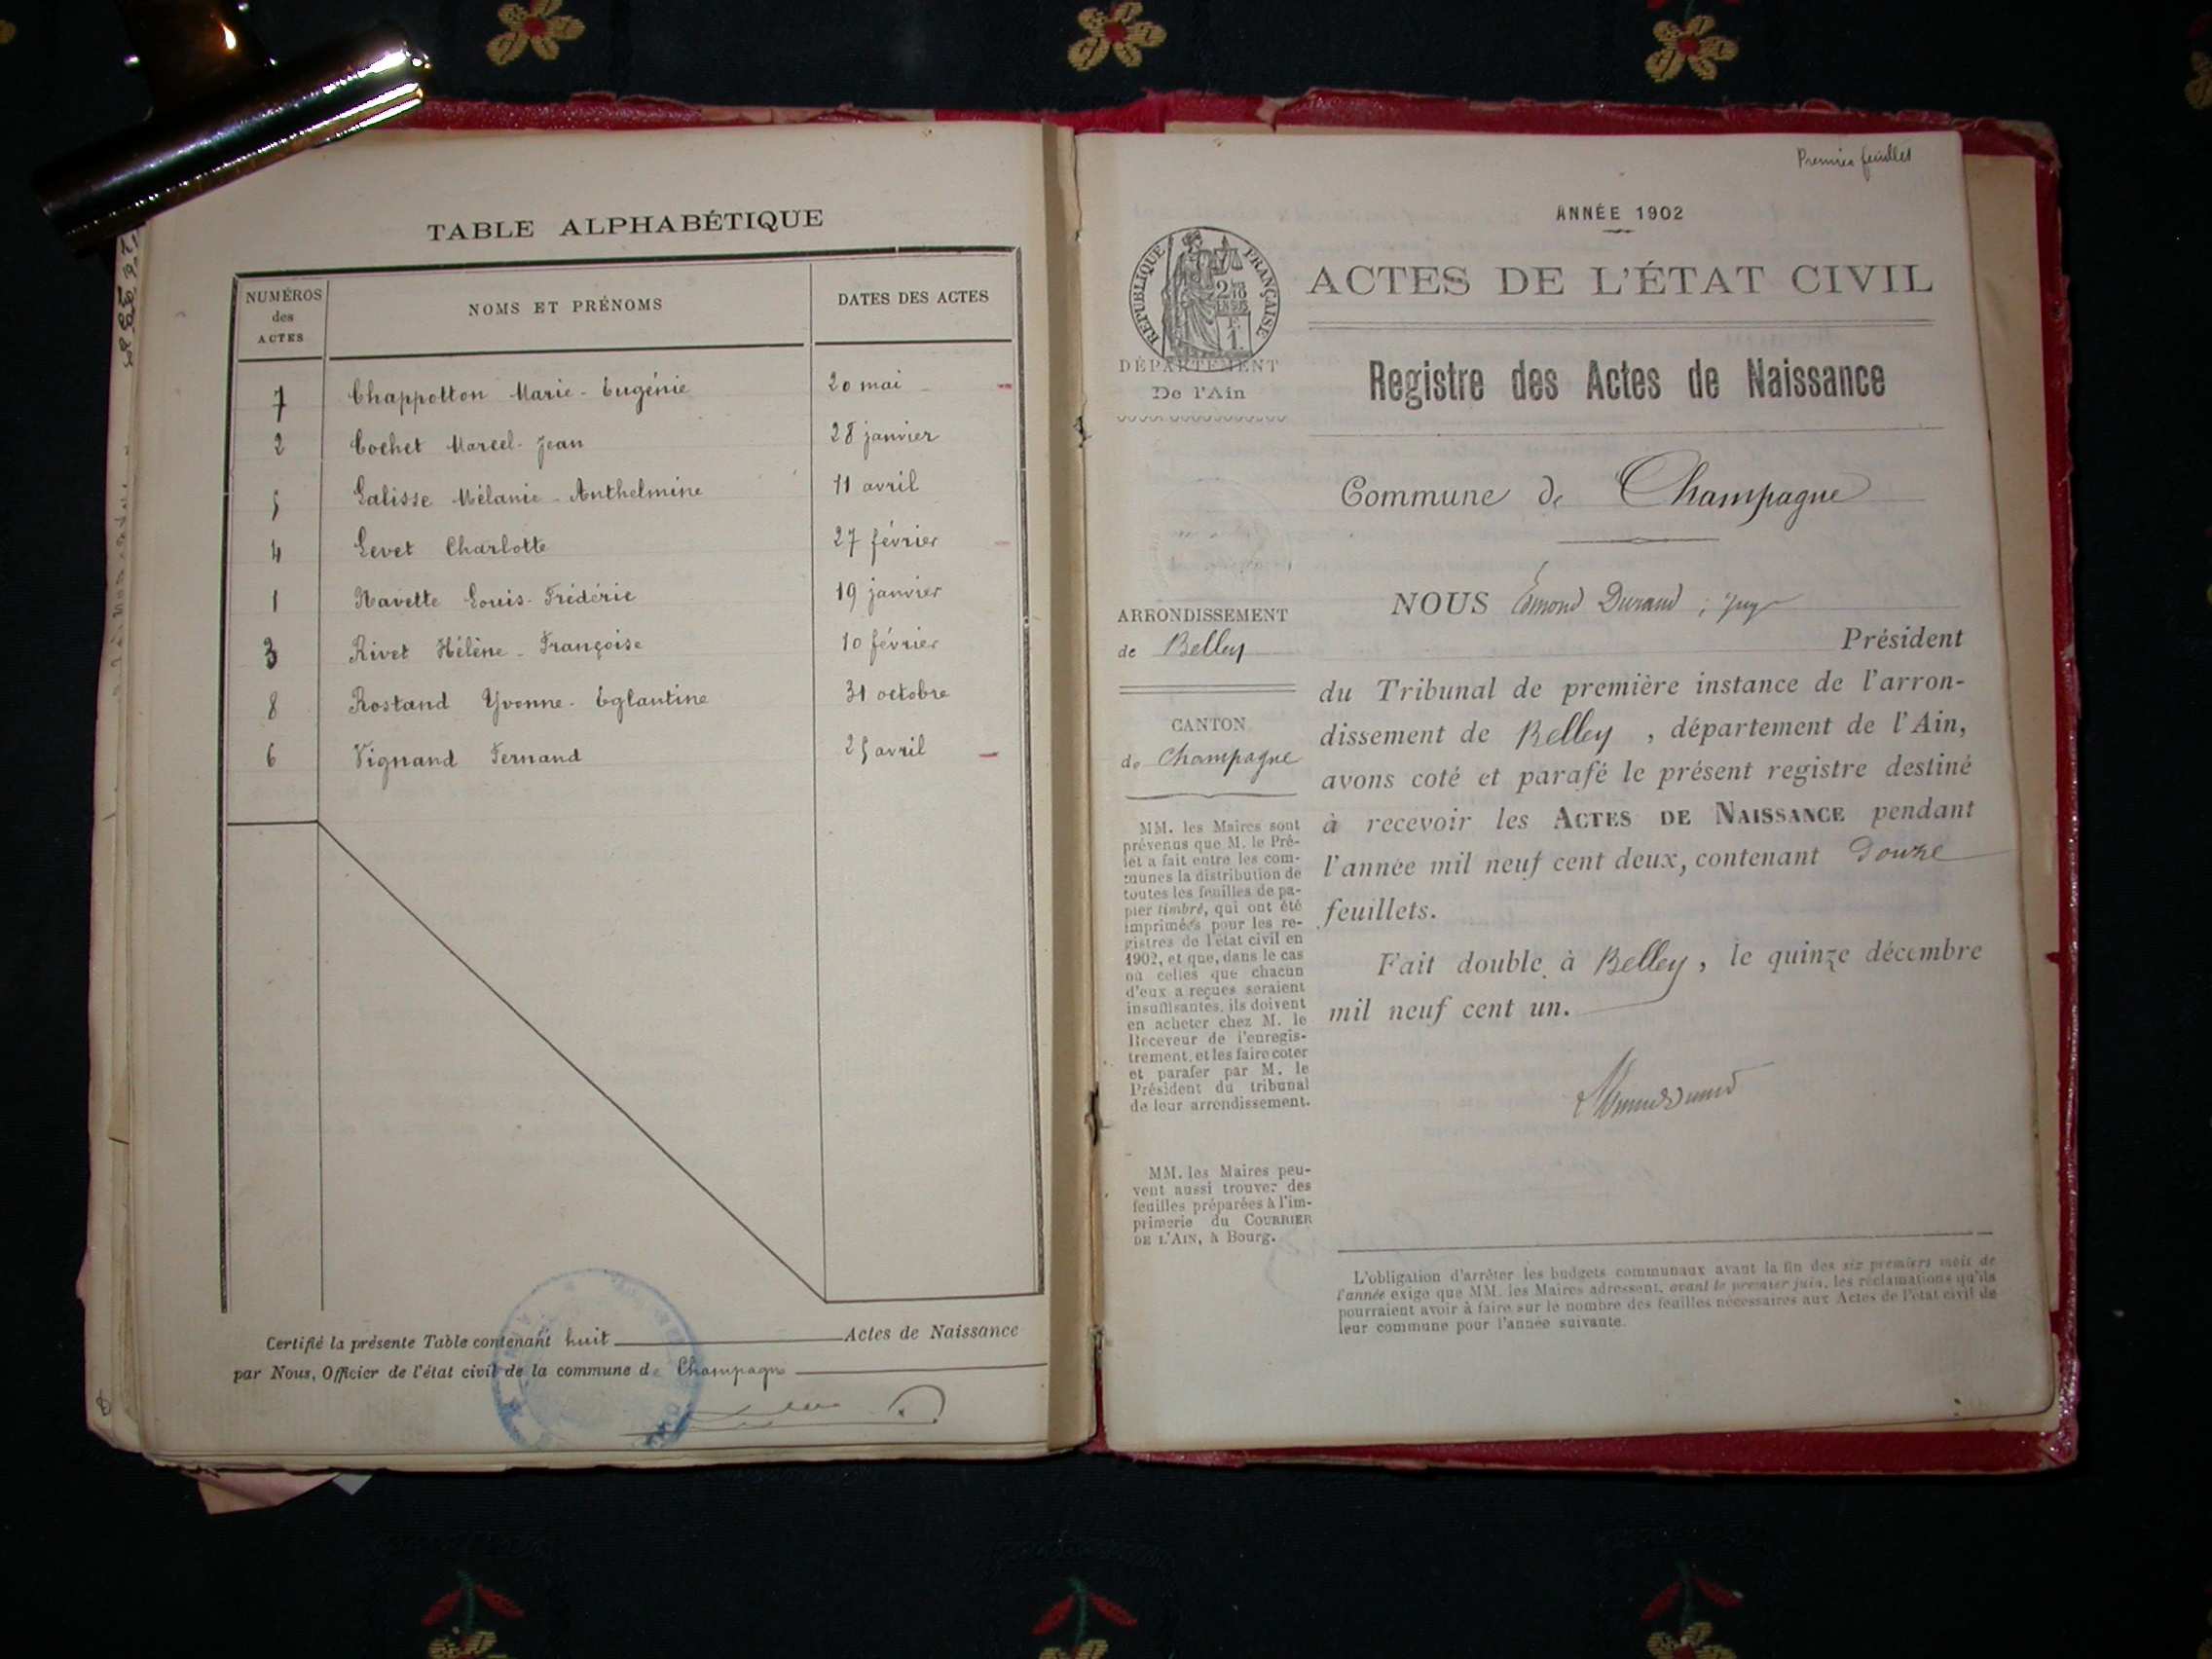 TABLE ALPHABÉTIQUE
NUMÉROS des ACTES
NOMS ET PRÉNOMS
DATES DES ACTES
7 Chappotton Marie-Eugénie 20 mai
2 Cochet Marcel-Jean 28 janvier
5 Galisse Mélanie-Anthelmine 11 avril
4 Levet Charlotte 27 février
1 Navette Louis-Frédéric 19 janvier
3 Rivet Hélène-Françoise 10 février
8 Rostand Yvonne-Eglantine 31 octobre
6 Vignand Fernand 25 avril
Certifié la présente Table contenant huit Actes de Naissance
par Nous, Officier de l'état civil de la commune de Champagne
Premier feuillet
ANNÉE 1902
RÉPUBLIQUE FRANÇAISE
ACTES DE L'ÉTAT CIVIL
DÉPARTEMENT
De l'Ain
Registre des Actes de Naissance
Commune de Champagne
ARRONDISSEMENT
de Belley
CANTON
de Champagne
MM. les Maires sont
prévenus que M. le Pré-
fet a fait entre les com-
munes la distribution de
toutes les feuilles de pa-
pier timbré, qui ont été
imprimées pour les re-
gistres de l'état civil en
1902, et que, dans le cas
où celles que chacun
d'eux a reçues seraient
insuffisantes, ils doivent
en acheter chez M. le
Receveur de l'enregis-
trement, et les faire coter
et parafer par M. le
Président du tribunal
de leur arrondissement.
MM. les Maires peu-
vent aussi trouver des
feuilles préparées à l'im-
primerie du COURRIER
DE L'AIN, à Bourg.
NOUS Edmond Durand, juge
Président
du Tribunal de première instance de l'arron-
dissement de Belley, département de l'Ain,
avons coté et parafé le présent registre destiné
à recevoir les ACTES DE NAISSANCE pendant
l'année mil neuf cent deux, contenant Douze
feuillets.
Fait double à Belley, le quinze décembre
mil neuf cent un.
L'obligation d'arrêter les budgets communaux avant la fin des six premiers mois de
l'année exige que MM. les Maires adressent, avant le premier juin, les réclamations qu'ils
pourraient avoir à faire sur le nombre des feuilles nécessaires aux Actes de l'état civil de
leur commune pour l'année suivante.